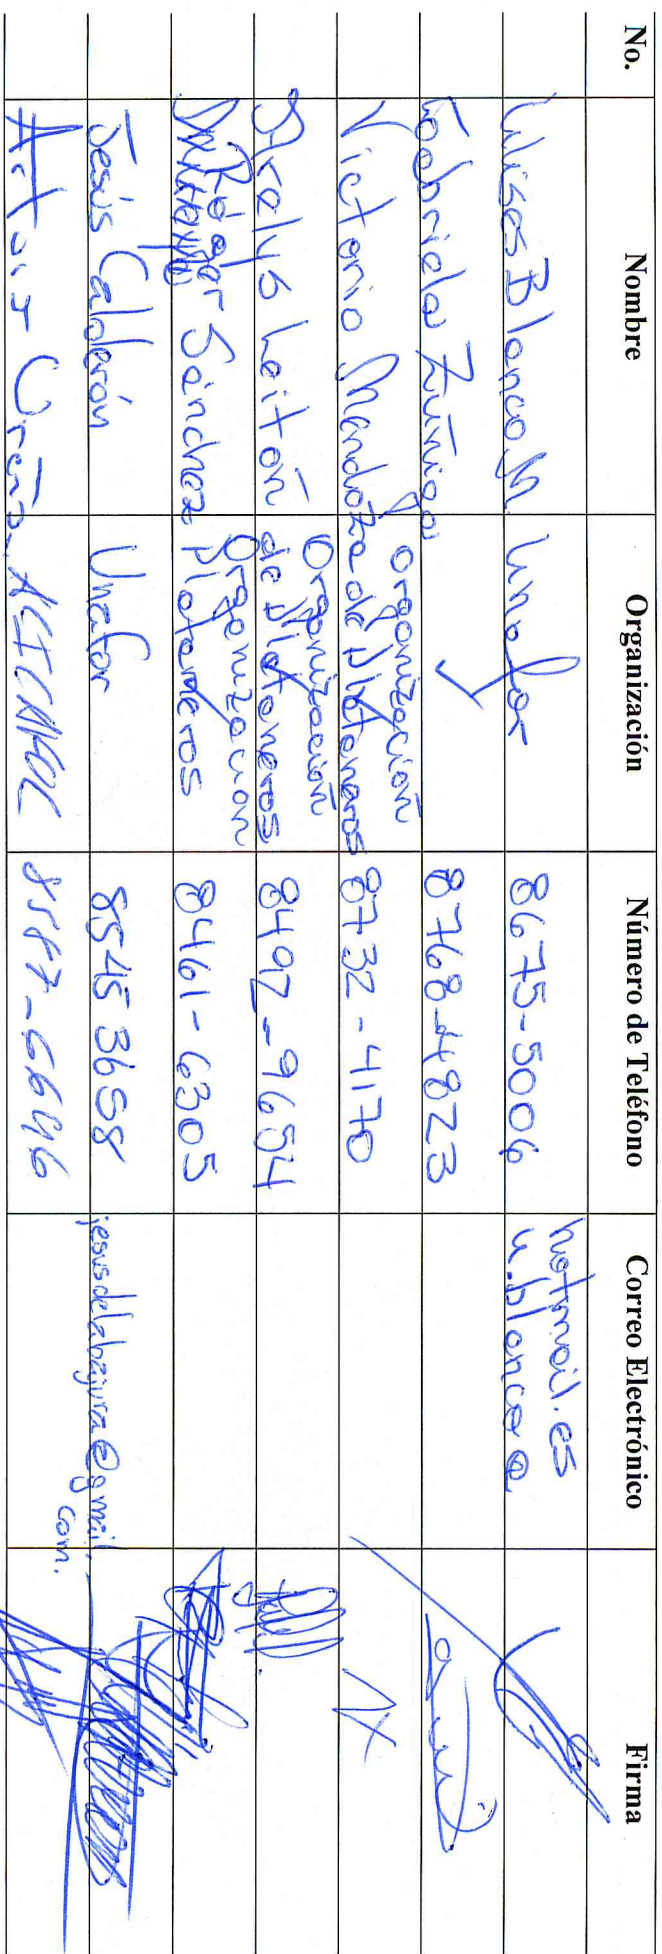 No. Nombre Organización Número de Teléfono Correo Electrónico Firma
Ulises Blanco M. Unafor 8675-5006 u.blanco@
hotmail.es
Gabriela Zúñiga ✓ 8768-4823
Victorio Mendoza organización
de plataneros 8732-4170 X
Arelys Leitón Organización
de plataneros 8492-9654
Róger Sánchez Organización
plataneros 8461-6305
Jesús Calderón Unafor 8545 3658 jesusdelabajura@gmail.
com.
Arturo Ureña 8587-6646